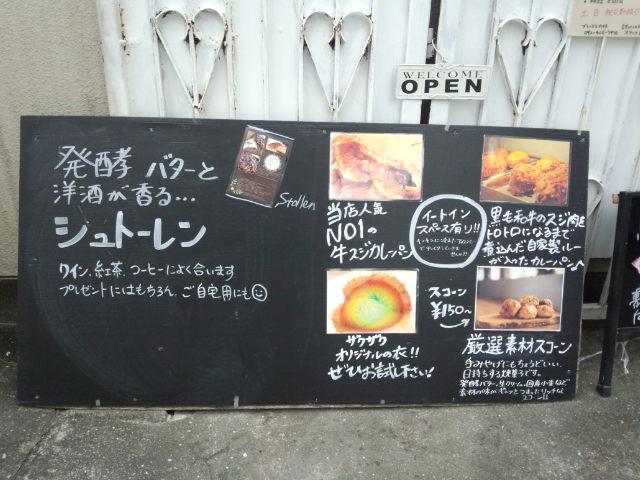 WELCOME
OPEN
発酵 バターと
洋酒が香る…
シュトーレン
ワイン、紅茶、コーヒーによく合います
プレゼントにはもちろん、ご自宅用にも
Stollen
当店人気
NO1の
牛スジカレーパン
イートイン
スペース有り!!
黒毛和牛のスジ肉を
トロトロになるまで
煮込んだ自家製ルー
が入ったカレーパン♪
サクサク
オリジナルの衣!!
ぜひお試し下さい!
スコーン
¥150~
厳選素材スコーン
手みやげにもちょうどいい、
日持ちする焼菓子です。
発酵バター、生クリーム、国産小麦など
素材の味がギュッとつまったリッチな
スコーン